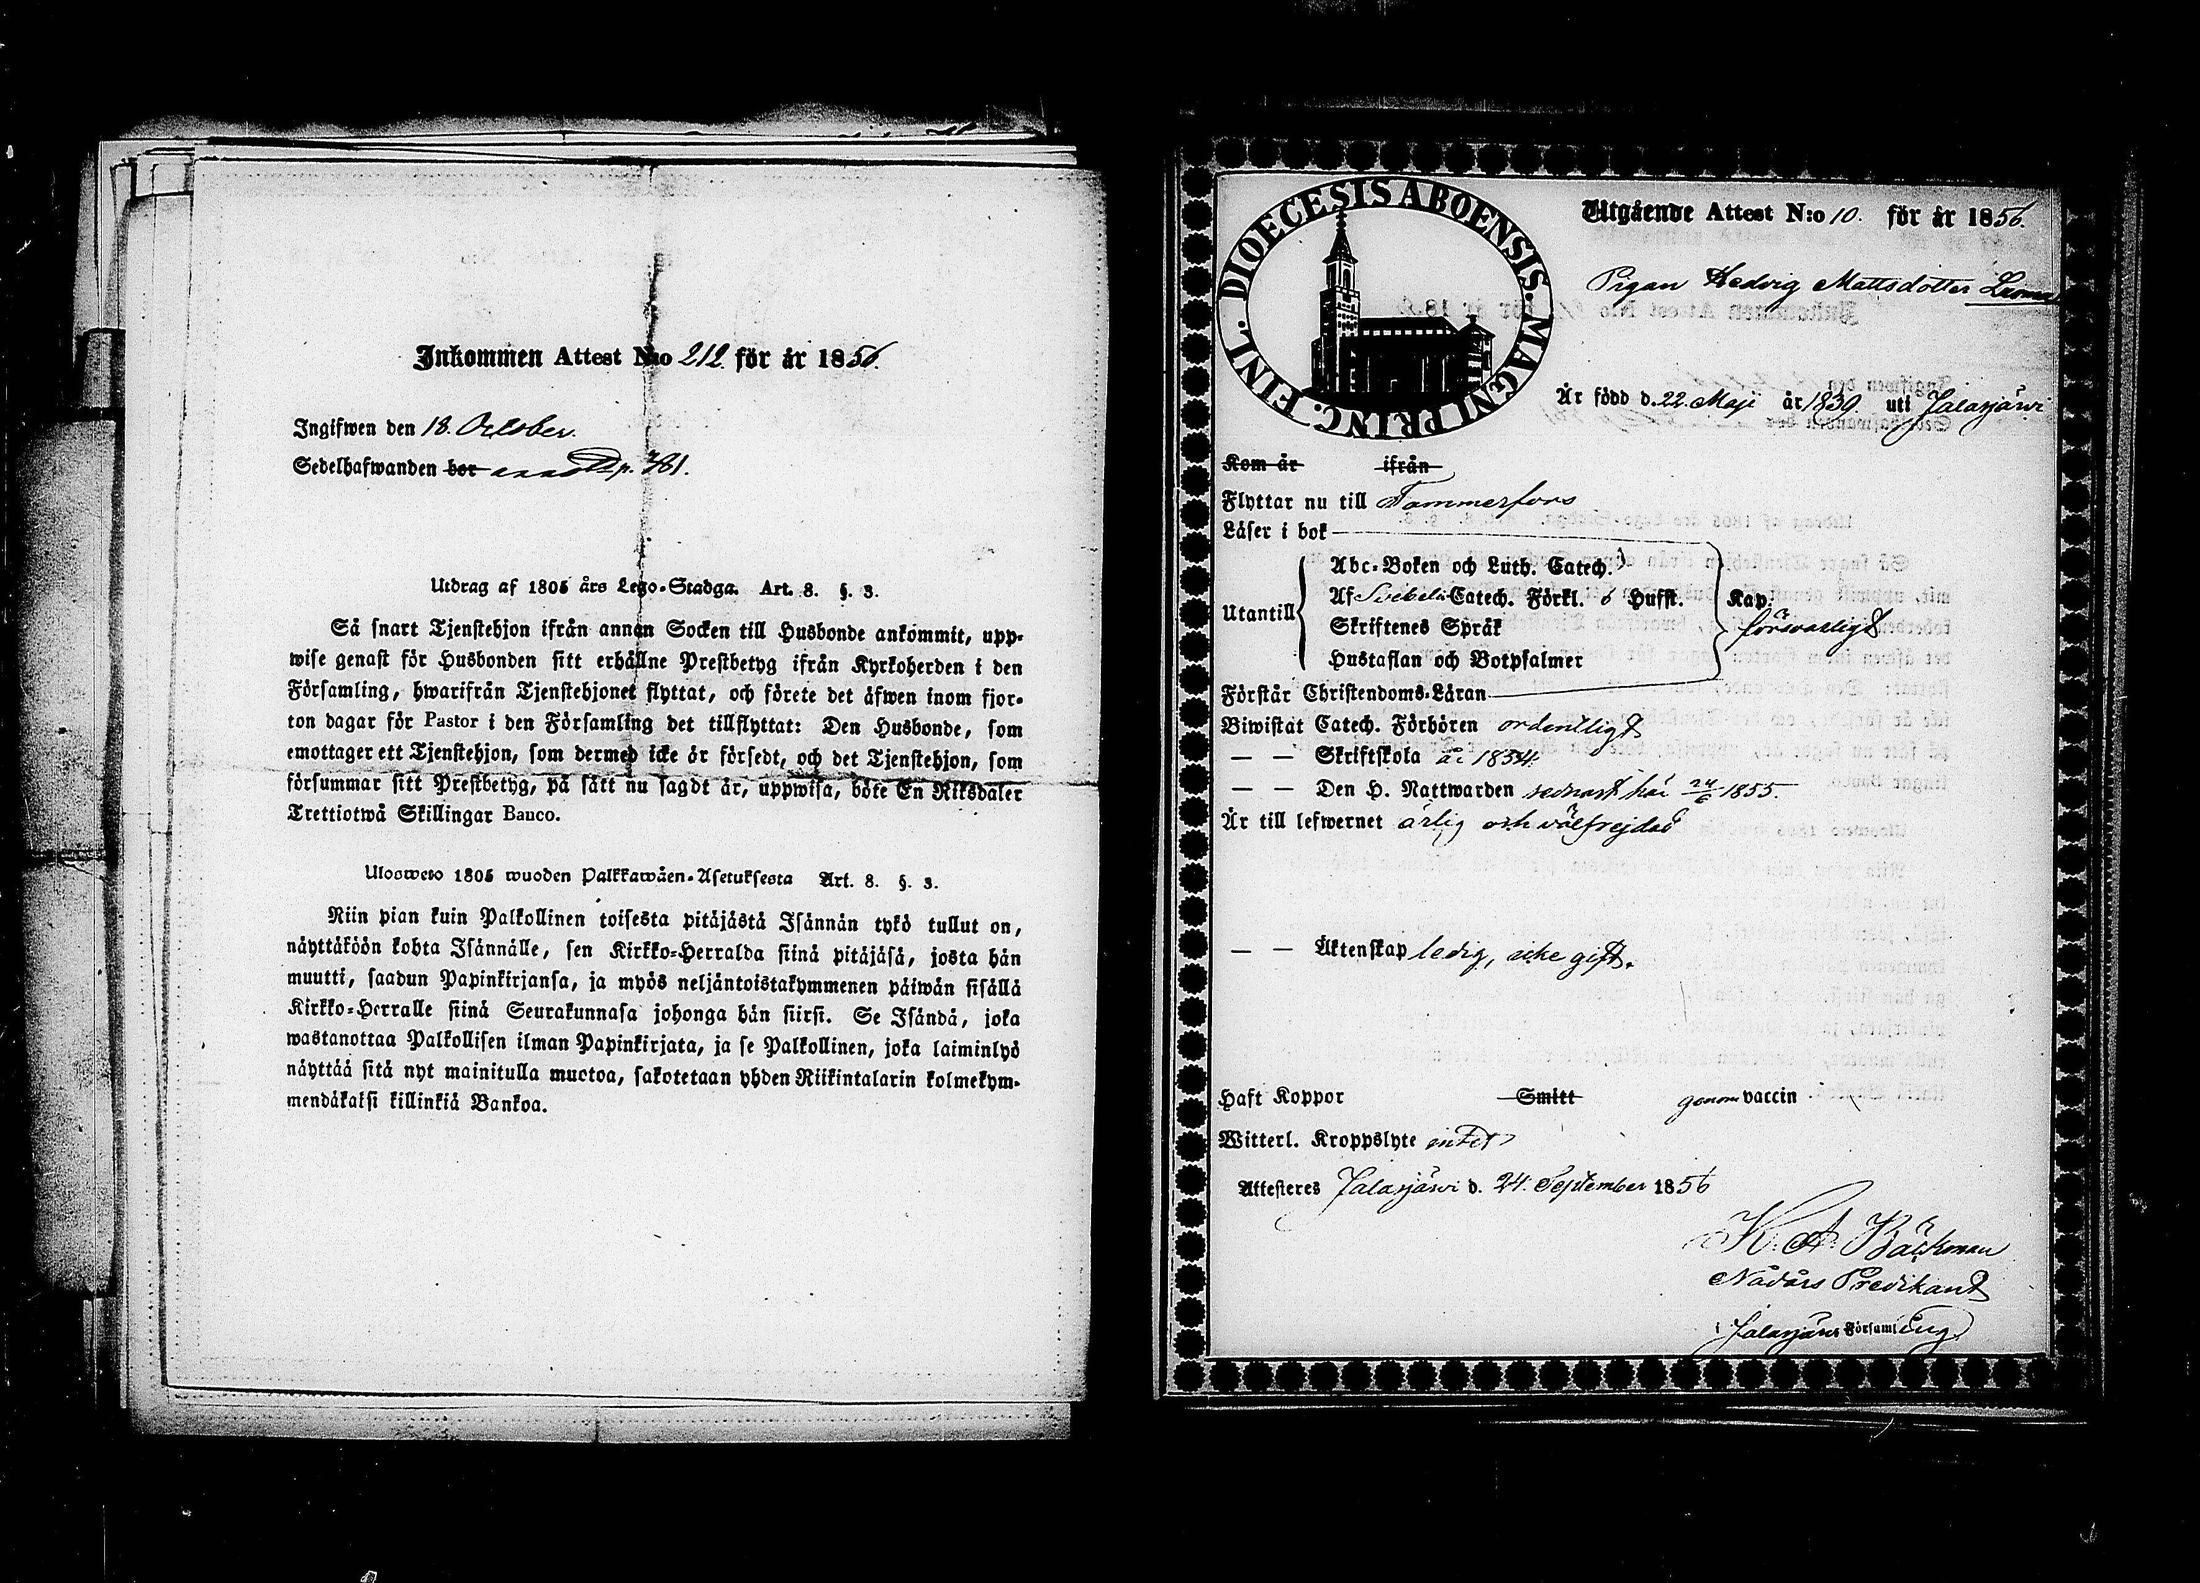 Inkommen Attest N:o 212. för år 1856.
Ingifwen den 18. October.
Sedelhafwanden bor p. 781.
Utdrag af 1805 års Lego-Stadga. Art. 8. §. 3.
Så snart Tjenstehjon ifrån annan Socken till Husbonde ankommit, upp-
wise genast för Husbonden sitt erhållne Prestbetyg ifrån Kyrkoherden i den
Församling, hwarifrån Tjenstehjonet flyttat, och förete det äfwen inom fjor-
ton dagar för Pastor i den Församling det tillflyttat: Den Husbonde, som
emottager ett Tjenstehjon, som dermed icke är försedt, och det Tjenstehjon, som
försummar sitt Prestbetyg, på sätt nu sagdt är, uppwisa, böte En Riksdaler
Trettiotwå Skillingar Banco.
Uloswero 1805 wuoden Palkkawäen-Asetuksesta Art. 8. §. 3.
Niin pian kuin Palkollinen toisesta pitäjästä Isännän tykö tullut on,
näyttäköön kohta Isännälle, sen Kirkko-Herralda siinä pitäjäsä, josta hän
muutti, saadun Papinkirjansa, ja myös neljäntoistakymmenen päiwän sisällä
Kirkko-Herralle siinä Seurakunnasa johonga hän siirsi. Se Isändä, joka
wastanottaa Palkollisen ilman Papinkirjata, ja se Palkollinen, joka laiminlyö
näyttää sitä nyt mainitulla muotoa, sakotetaan yhden Riikintalarin kolmekym-
mendäkaksi killinkiä Bankoa.
DIOECESIS ABOENSIS. MAGNI PRINC. FINL.
Utgående Attest N:o 10. för år 1856.
Pigan Hedvig Mattsdotter Luoma
Är född d. 22. Maji år 1839. uti Jalasjärvi
Kom år ifrån
Flyttar nu till Tammerfors
Läser i bok
Abc-Boken och Luth. Catech.
Utantill
Af Svebelii Catech. Förkl. o Hufst. Kap.
Skriftenes Språk försvarligt
Hustaflan och Botpsalmer
Förstår Christendoms-Läran
Biwistat Catech. Förhören ordentligt
— — Skriftskola år 1854.
— — Den H. Nattwarden sednast här 24/6 1855.
Är till lefwernet ärlig och välfrejdad
— — Äktenskap ledig, icke gift.
Haft Koppor Smitt genom vaccin
Witterl. Kroppslyte intet
Attesteres Jalasjärvi d. 24. September 1856
K. A. Bäckman
Nådårs Predikant
i Jalasjärvi Församl